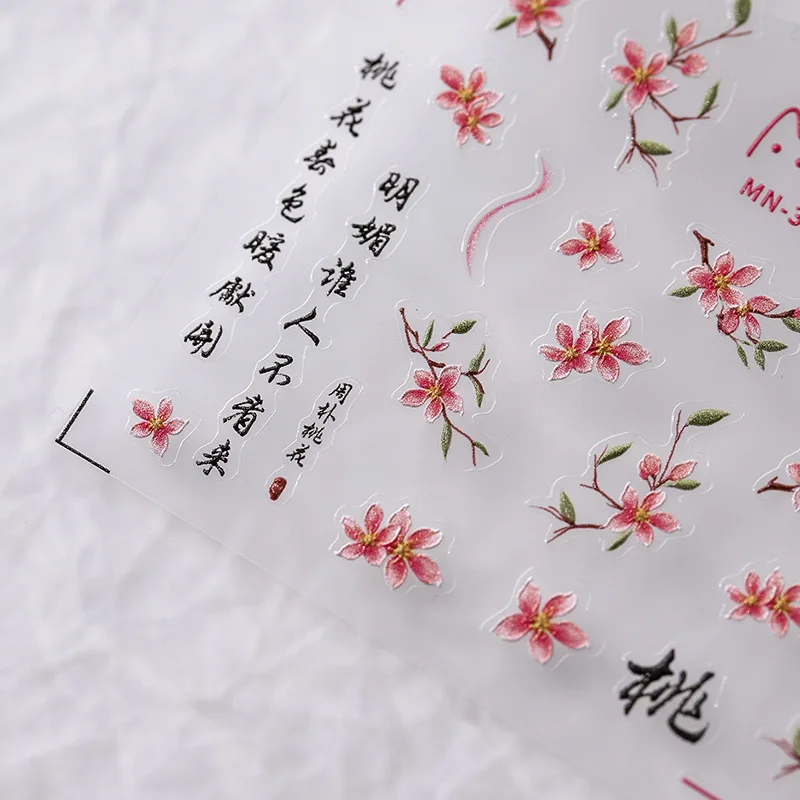 桃花春色暖獻開
明媚誰人不看来
周朴桃花
桃
MN-3